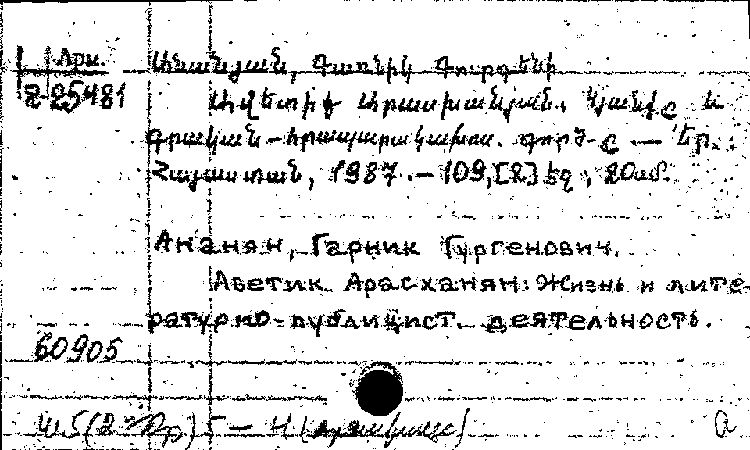 Арм.
2-25481
Անանյան, Գառնիկ Գուրգենի
Ավետիք Արասխանյան. Կյանքը և
գրական-հրապարակախոս. գործ-ը — Եր.
Հայաստան, 1987. — 109, [2] էջ, 20սմ.
Ананян, Гарник Гургенович.
Аветик Арасханян: Жизнь и лите-
ратурно-публицист. деятельность.
60905